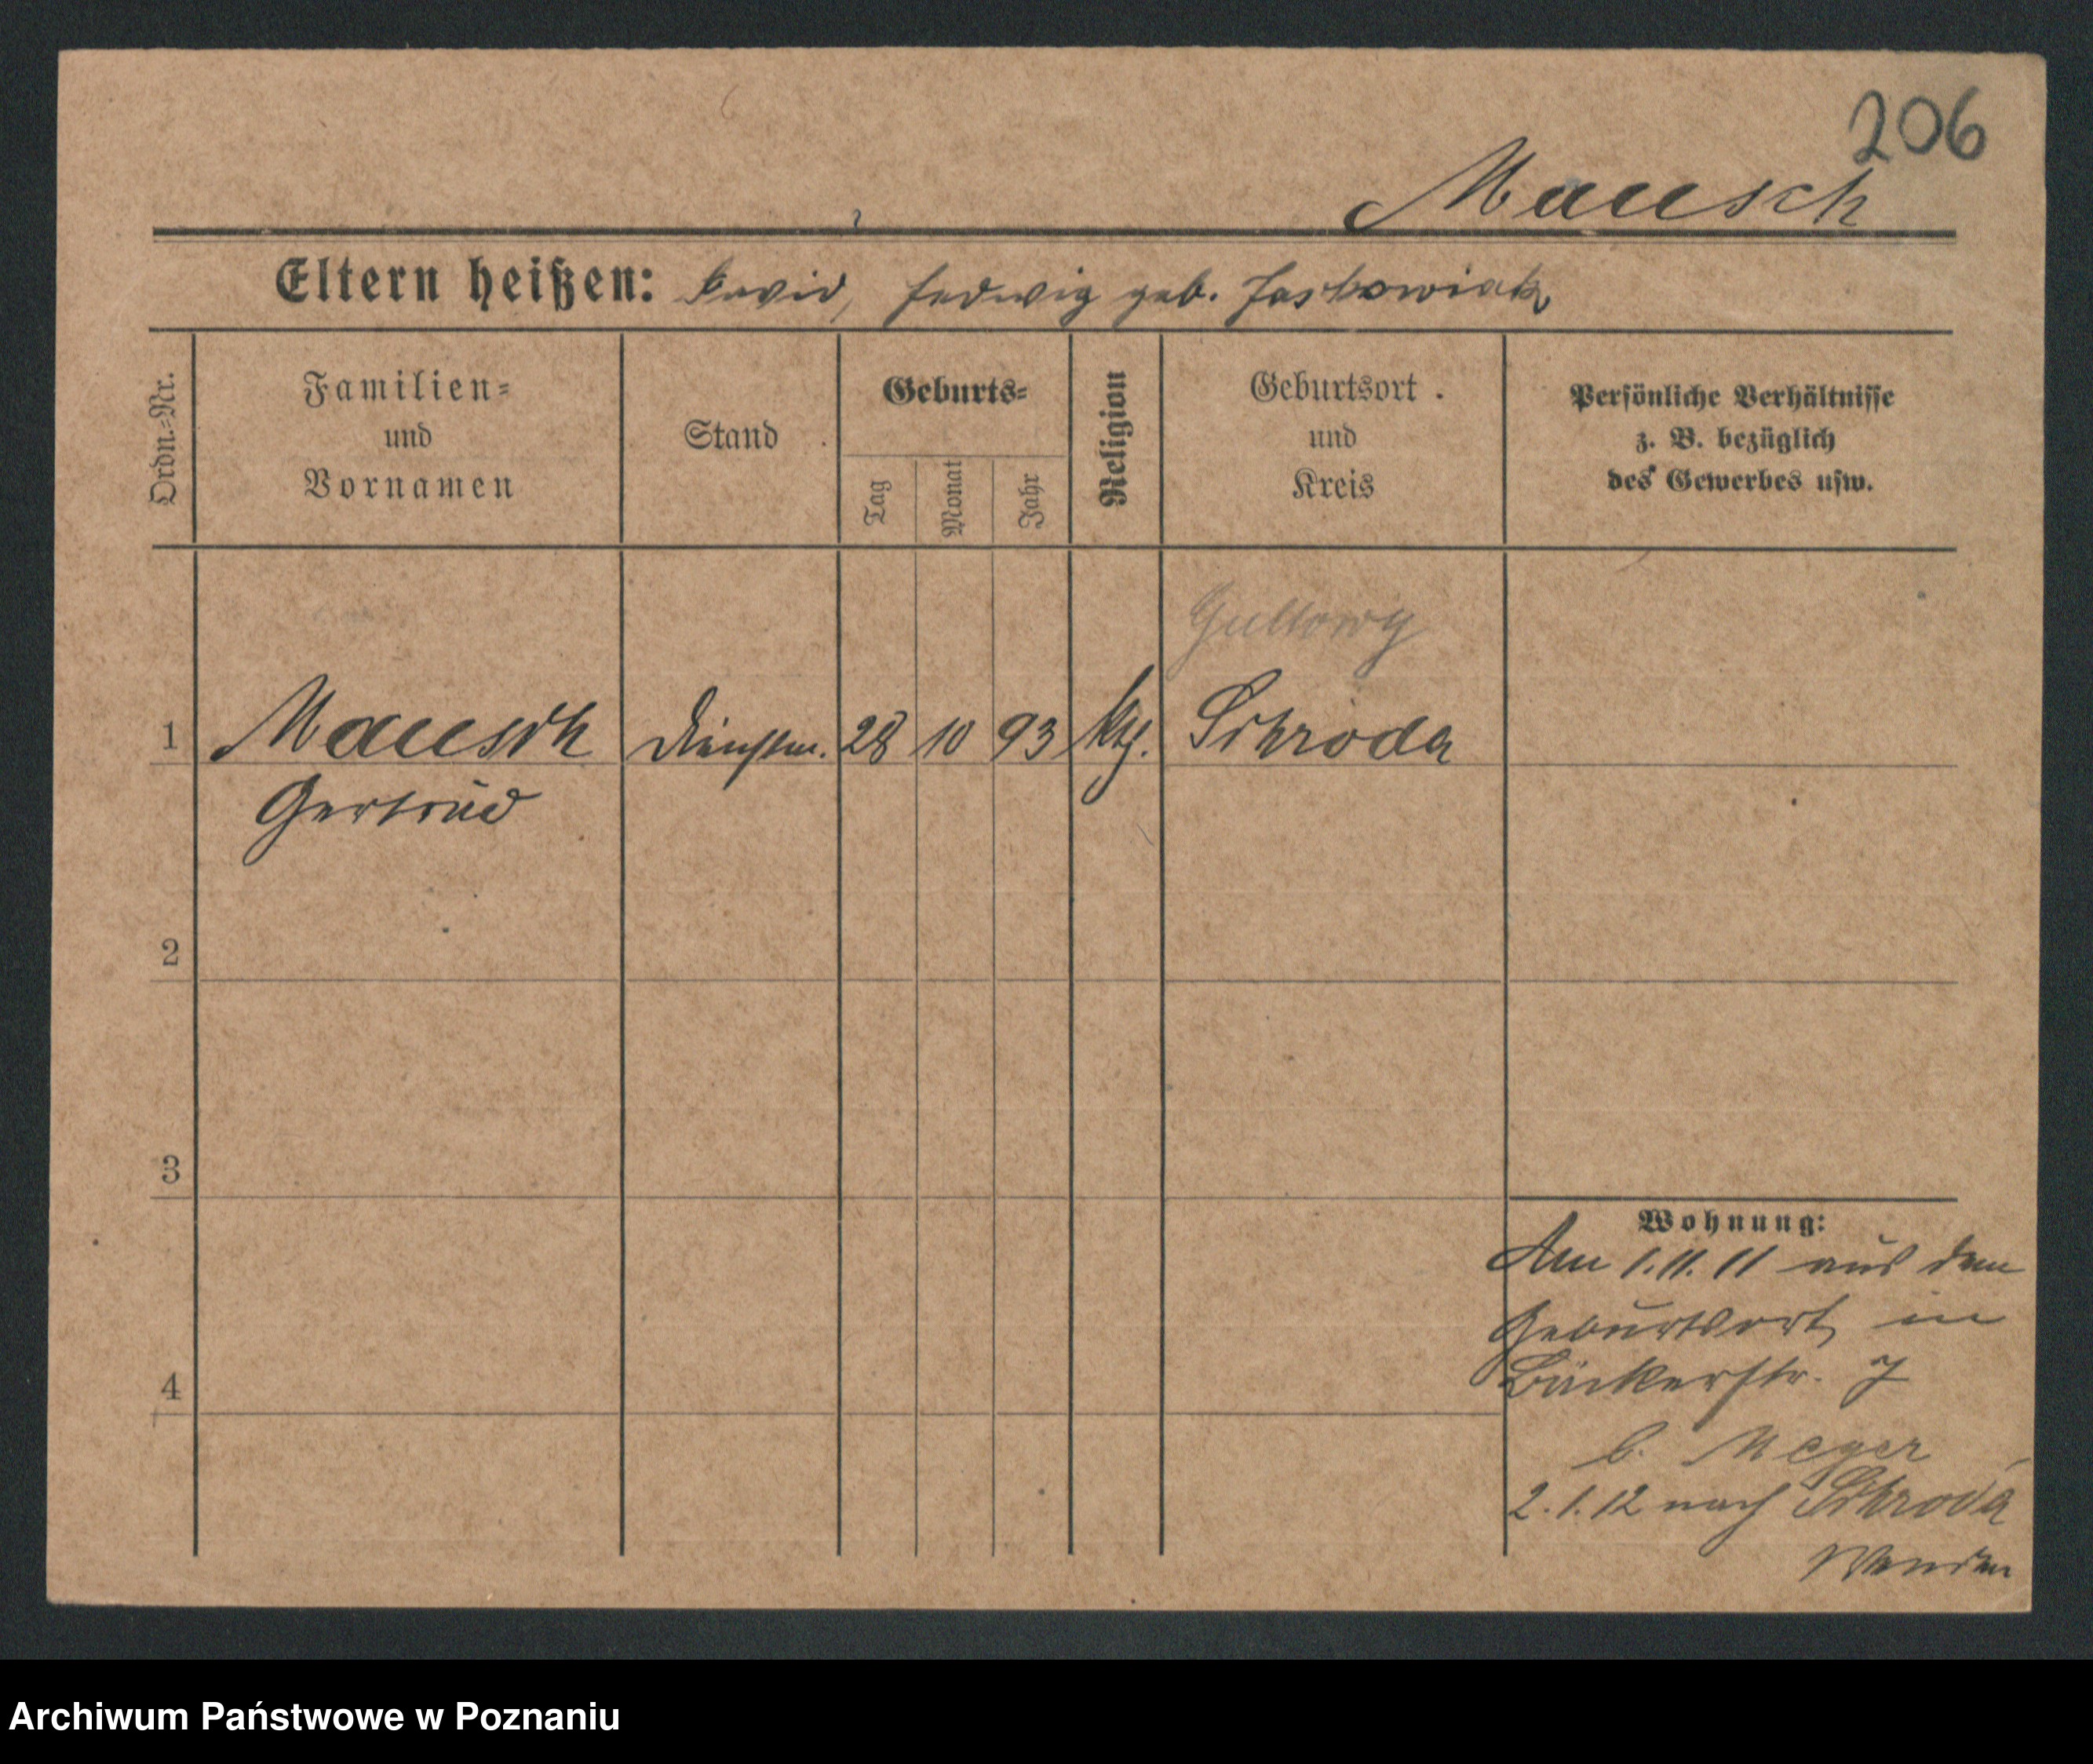 206
Mausch
Eltern heißen: David, Hedwig geb. Jaskowiak
Ordn.=Nr.
Familien=
und
Vornamen
Stand
Geburts=
Tag
Monat
Jahr
Religion
Geburtsort
und
Kreis
Persönliche Verhältnisse
z. B. bezüglich
des Gewerbes usw.
Gultowy
1 Mausch Dienstm. 28 10 93 kth. Schroda
Gertrud
2
3
Wohnung:
Am 1.11.11 aus dem
Geburtsort in
4
Bäckerstr. 7
b. Meyer
2.1.12 nach Schroda
Wenden
Archiwum Państwowe w Poznaniu